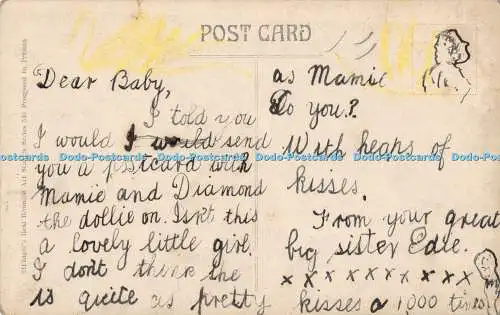 POST CARD
Dear Baby,
I told you
I would I would send
you a postcard with
Mamie and Diamond
the dollie on. Isn't this
a lovely little girl.
I don't think she
is quite as pretty
as Mamie
Do you?
With heaps of
kisses.
From your great
big sister Edie.
x x x x x x x x x x
kisses a 1,000 times
Dodo-Postcards Dodo-Postcards Dodo-Postcards Dodo-Postcards Dodo-Postcards Dodo-Postcards